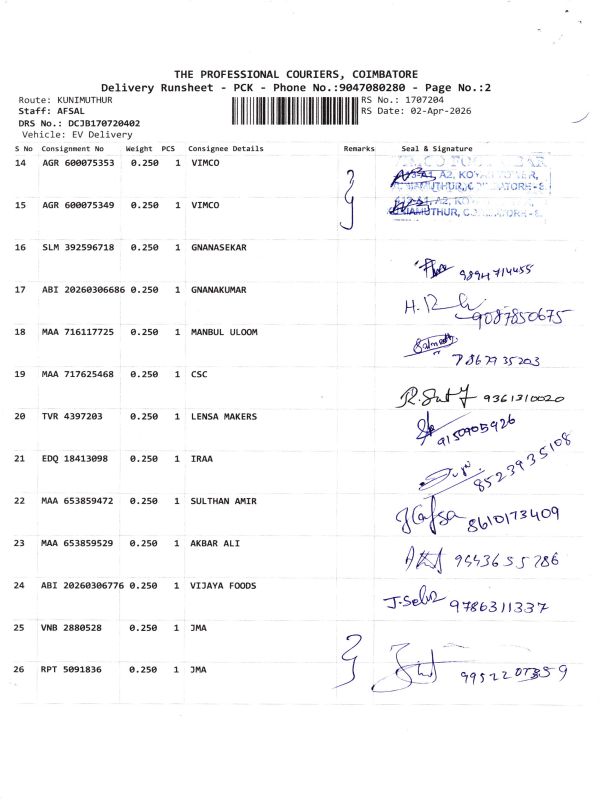 THE PROFESSIONAL COURIERS, COIMBATORE
Delivery Runsheet - PCK - Phone No.:9047080280 - Page No.:2
Route: KUNIMUTHUR
RS No.: 1707204
Staff: AFSAL
RS Date: 02-Apr-2026
DRS No.: DCJB170720402
Vehicle: EV Delivery
S No Consignment No Weight PCS Consignee Details Remarks Seal & Signature
14 AGR 600075353 0.250 1 VIMCO
A2, KOVAI
15 AGR 600075349 0.250 1 VIMCO
16 SLM 392596718 0.250 1 GNANASEKAR
9894714455
17 ABI 20260306686 0.250 1 GNANAKUMAR
9087850675
18 MAA 716117725 0.250 1 MANBUL ULOOM
7867735203
19 MAA 717625468 0.250 1 CSC
9361310020
20 TVR 4397203 0.250 1 LENSA MAKERS
9150905926
21 EDQ 18413098 0.250 1 IRAA
8523935108
22 MAA 653859472 0.250 1 SULTHAN AMIR
8610173409
23 MAA 653859529 0.250 1 AKBAR ALI
9443655786
24 ABI 20260306776 0.250 1 VIJAYA FOODS
9786311337
25 VNB 2880528 0.250 1 JMA
26 RPT 5091836 0.250 1 JMA